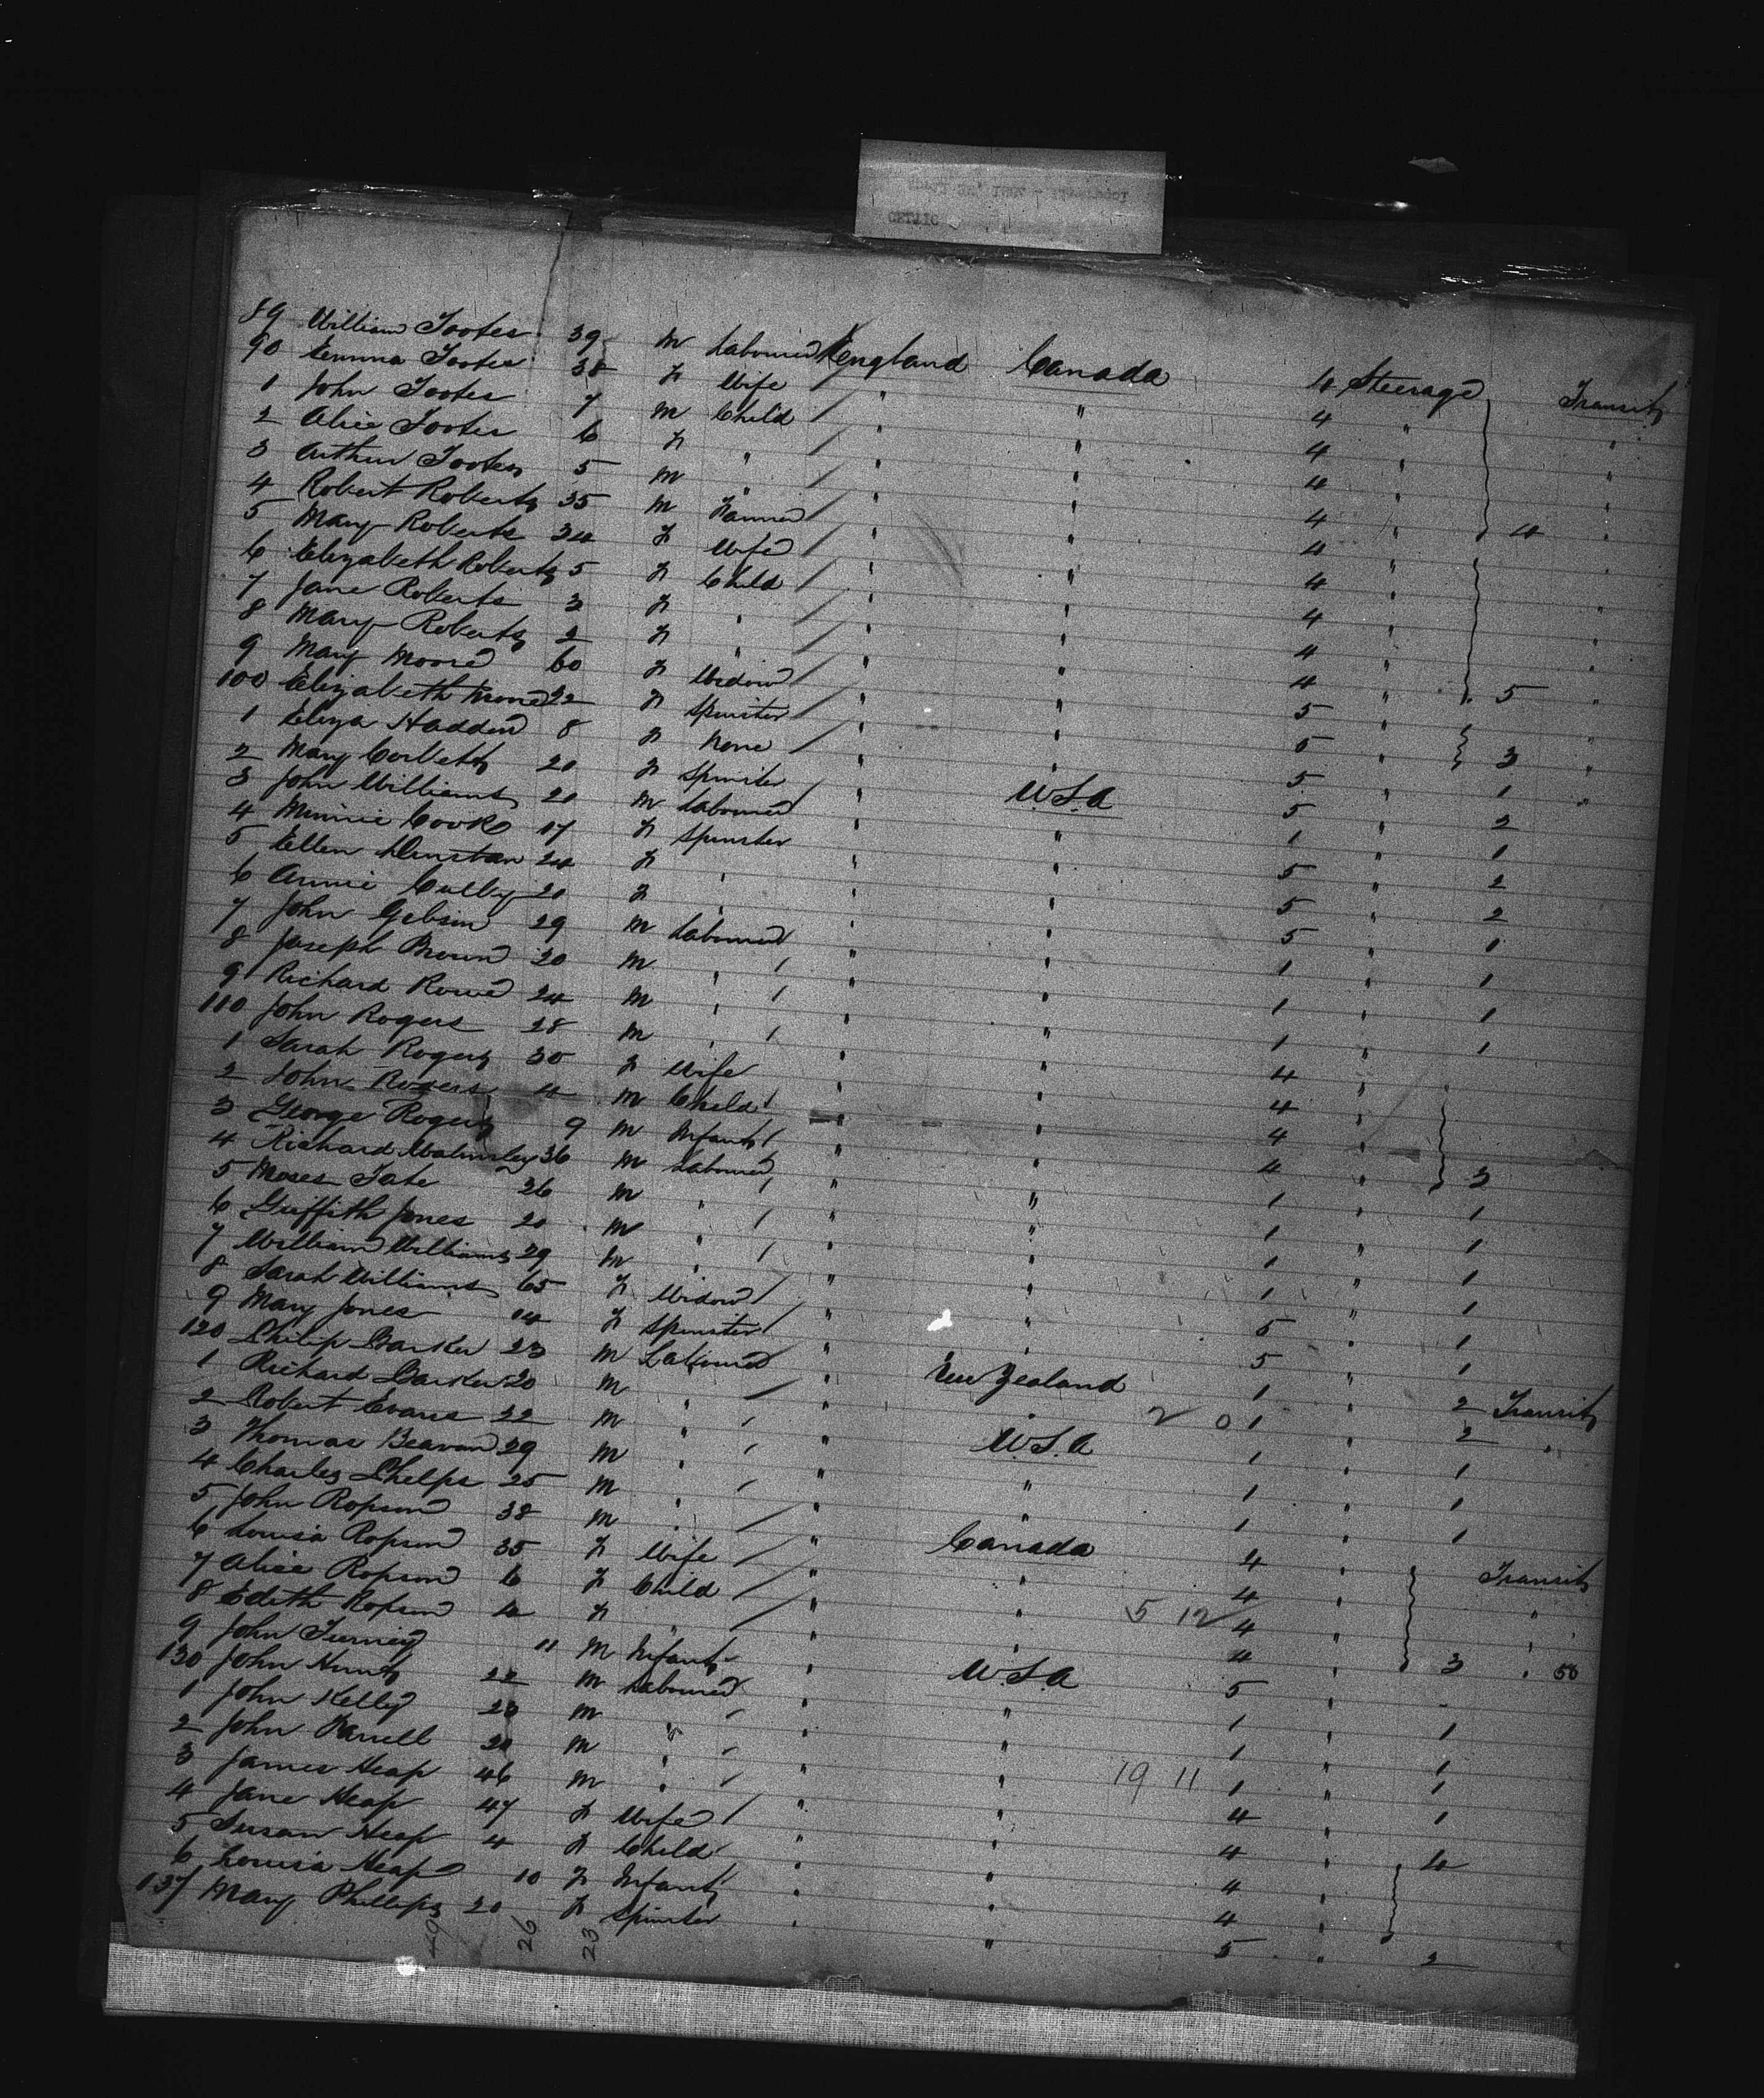 89 William Footes 39 M Labourer England Canada 4 Steerage Transit
90 Emma Footes 38 F Wife " " 4 " "
1 John Footes 7 M Child " " 4 " "
2 Alice Footes 6 F " " " 4 " "
3 Arthur Footes 5 M " " " 4 " 4 "
4 Robert Roberts 35 M Farmer " " 4 " "
5 Mary Roberts 34 F Wife " " 4 " "
6 Elizabeth Roberts 5 F Child " " 4 " "
7 Jane Roberts 3 F " " " 4 " "
8 Mary Roberts 2 F " " " 4 " 5 "
9 Mary Moore 60 F Widow " " 5 " "
100 Elizabeth Moore 22 F Spinster " " 5 " 3 "
1 Eliza Hadden 8 F None " " 5 " 1 "
2 Mary Corbett 20 F Spinster " U.S.A 5 " 2
3 John Williams 20 M Labourer " " 1 " 1
4 Minnie Cook 17 F Spinster " " 5 " 2
5 Ellen Dunstan 24 F " " " 5 " 2
6 Annie Culley 20 F " " " 5 " 1
7 John Gibson 29 M Labourer " " 1 " 1
8 Joseph Brown 20 M " " " 1 " 1
9 Richard Rowe 24 M " " " 1 " 1
110 John Rogers 28 M " " " 4 "
1 Sarah Rogers 30 F Wife " " 4 "
2 John Rogers 4 M Child " " 4 "
3 George Rogers 9 M Infant " " 4 " 3
4 Richard Walmsley 36 M Labourer " " 1 " 1
5 Moses Tate 26 M " " " 1 " 1
6 Griffith Jones 20 M " " " 1 " 1
7 William Williams 29 M " " " 1 " 1
8 Sarah Williams 65 F Widow " " 5 " 1
9 Mary Jones 14 F Spinster " " 5 " 1
120 Philip Barker 23 M Labourer " New Zealand 1 " 2 Transit
1 Richard Barker 20 M " " " 2 0 1 " 2 "
2 Robert Evans 22 M " " U.S.A 1 " 1
3 Thomas Beavan 29 M " " " 1 " 1
4 Charles Phelps 25 M " " " 1 " 1
5 John Ropson 38 M " " Canada 4 " Transit
6 Louisa Ropson 35 F Wife " " 4 " "
7 Alice Ropson 6 F Child " " 5 12 4 " "
8 Edith Ropson 4 F " " " 4 " 3 " 50
9 John Tierney 11 M Infant " U.S.A 5 "
130 John Hunt 22 M Labourer " " 1 " 1
1 John Kelly 23 M " " " 1 " 1
2 John Farrell 20 M " " " 19 11 1 " 1
3 James Heap 46 M " " " 4 " 1
4 Jane Heap 47 F Wife " " 4 " 4
5 Susan Heap 4 F Child " " 4 "
6 Louisa Heap 10 F Infant " " 4 "
137 Mary Phillips 20 F Spinster " " 5 " 2
49 26 23